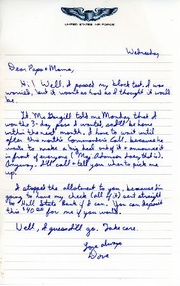 UNITED STATES AIR FORCE
Wednesday
Dear Papa & Mama,
Hi! Well, I passed my block test. I was
worried, but it wasn't as hard as I thought it would
be.
Lt. Mc told me Monday that I
won the 3-day pass I wanted, so I'll be home
within the next month. I have to wait until
after this month's Commander's Call, because he
wants to make a big deal out of it & announce it
in front of everyone (Maj. does that).
Anyway, I'll call & tell you when to pick me
up.
I stopped the allotment to you, because I'm
going to have my check (all of it) sent straight
to State Bank if I can. You can deposit
the for me if you would.
Well, I guess I'll go. Take care.
Love always